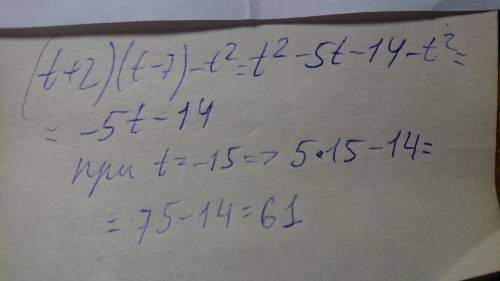 (t+2)(t-7)-t²=t²-5t-14-t²=
= -5t-14
при t=-15=> 5•15-14=
= 75-14=61